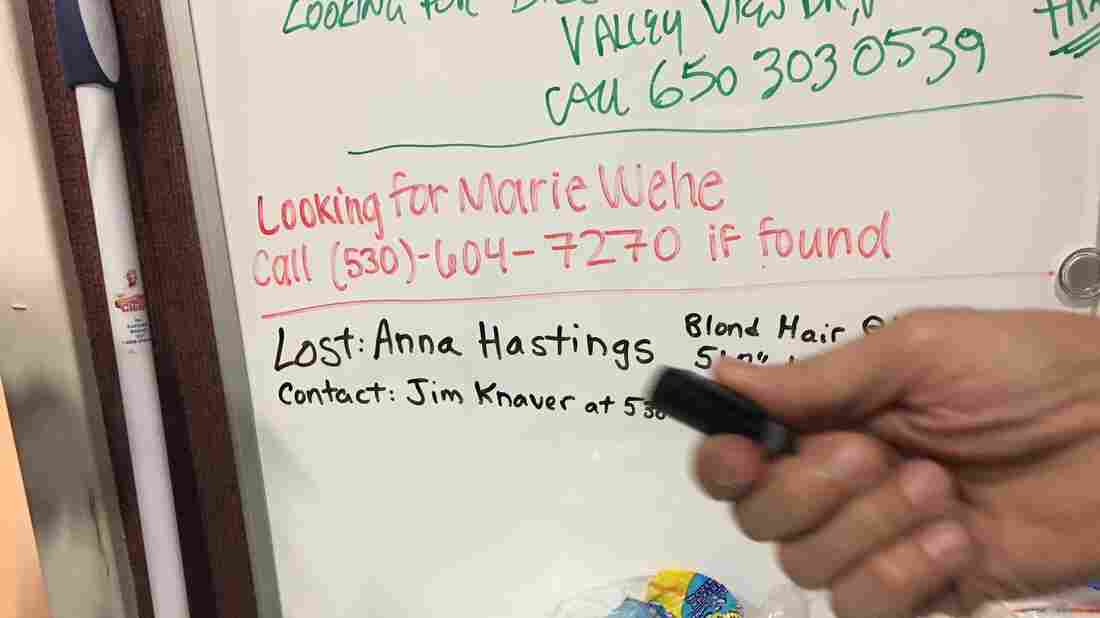 LOOKING FOR
VALLEY VIEW DR,
CALL 650 303 0539
Looking for Marie Wehe
Call (530)-604-7270 if found
Lost: Anna Hastings
Blond Hair
Contact: Jim Knaver at 530